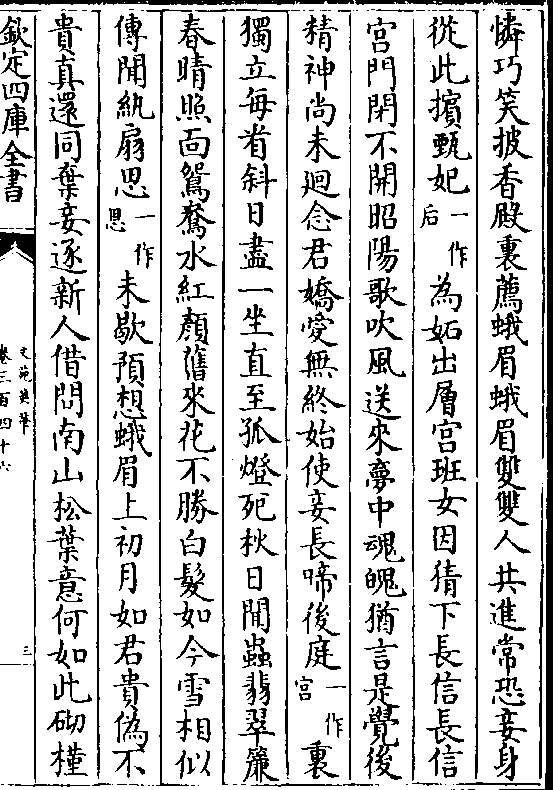 憐巧笑披香殿裏薦蛾眉蛾眉雙雙人共進常恐妾身
從此擯甄妃一作后為妬出層宮班女因猜下長信長信
宮門閉不開昭陽歌吹風送來夢中魂魄猶言是覺後
精神尚未迴念君嬌愛無終始使妾長啼後庭一作宮裏
獨立每看斜日盡一坐直至孤燈死秋日聞蟲翡翠簾
春晴照面鴛鴦水紅顏舊來花不勝白髮如今雪相似
傳聞紈扇思一作恩未歇預想蛾眉上初月如君貴偽不
貴真還同葉妾逐新人借問南山松葉意何如此砌槿
欽定四庫全書
文苑英華
卷三百四十六
三